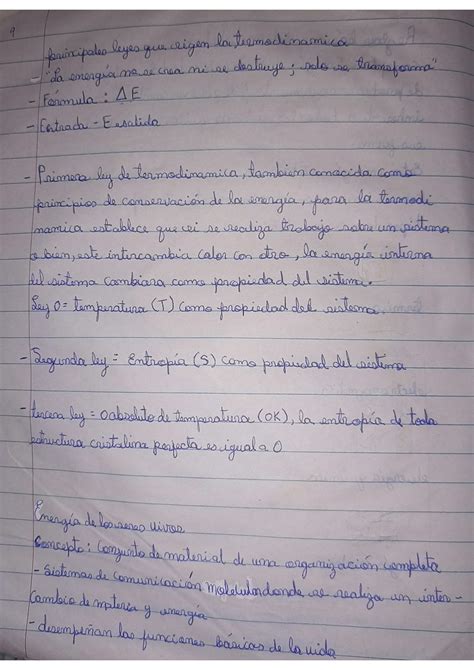 9
principales leyes que rigen la termodinamica
"La energía no se crea ni se destruye; solo se transforma"
- Fórmula: ΔE
- Entrada - E salida
- Primera ley de termodinamica, también conocida como
principios de conservación de la energía, para la termodi
namica establece que si se realiza trabajo sobre un sistema
o bien, este intercambia calor con otro, la energía interna
del sistema cambiara como propiedad del sistema.
Ley 0 = temperatura (T) como propiedad del sistema.
- Segunda ley = Entropía (S) como propiedad del sistema
- tercera ley = 0 absoluto de temperatura (0K), la entropía de toda
estructura cristalina perfecta es igual a 0
Energía de los seres vivos
Concepto: Conjunto de material de una organización completa
- Sistemas de comunicación molekular donde se realiza un inter -
cambio de materia y energía
- desempeñan las funciones básicas de la vida